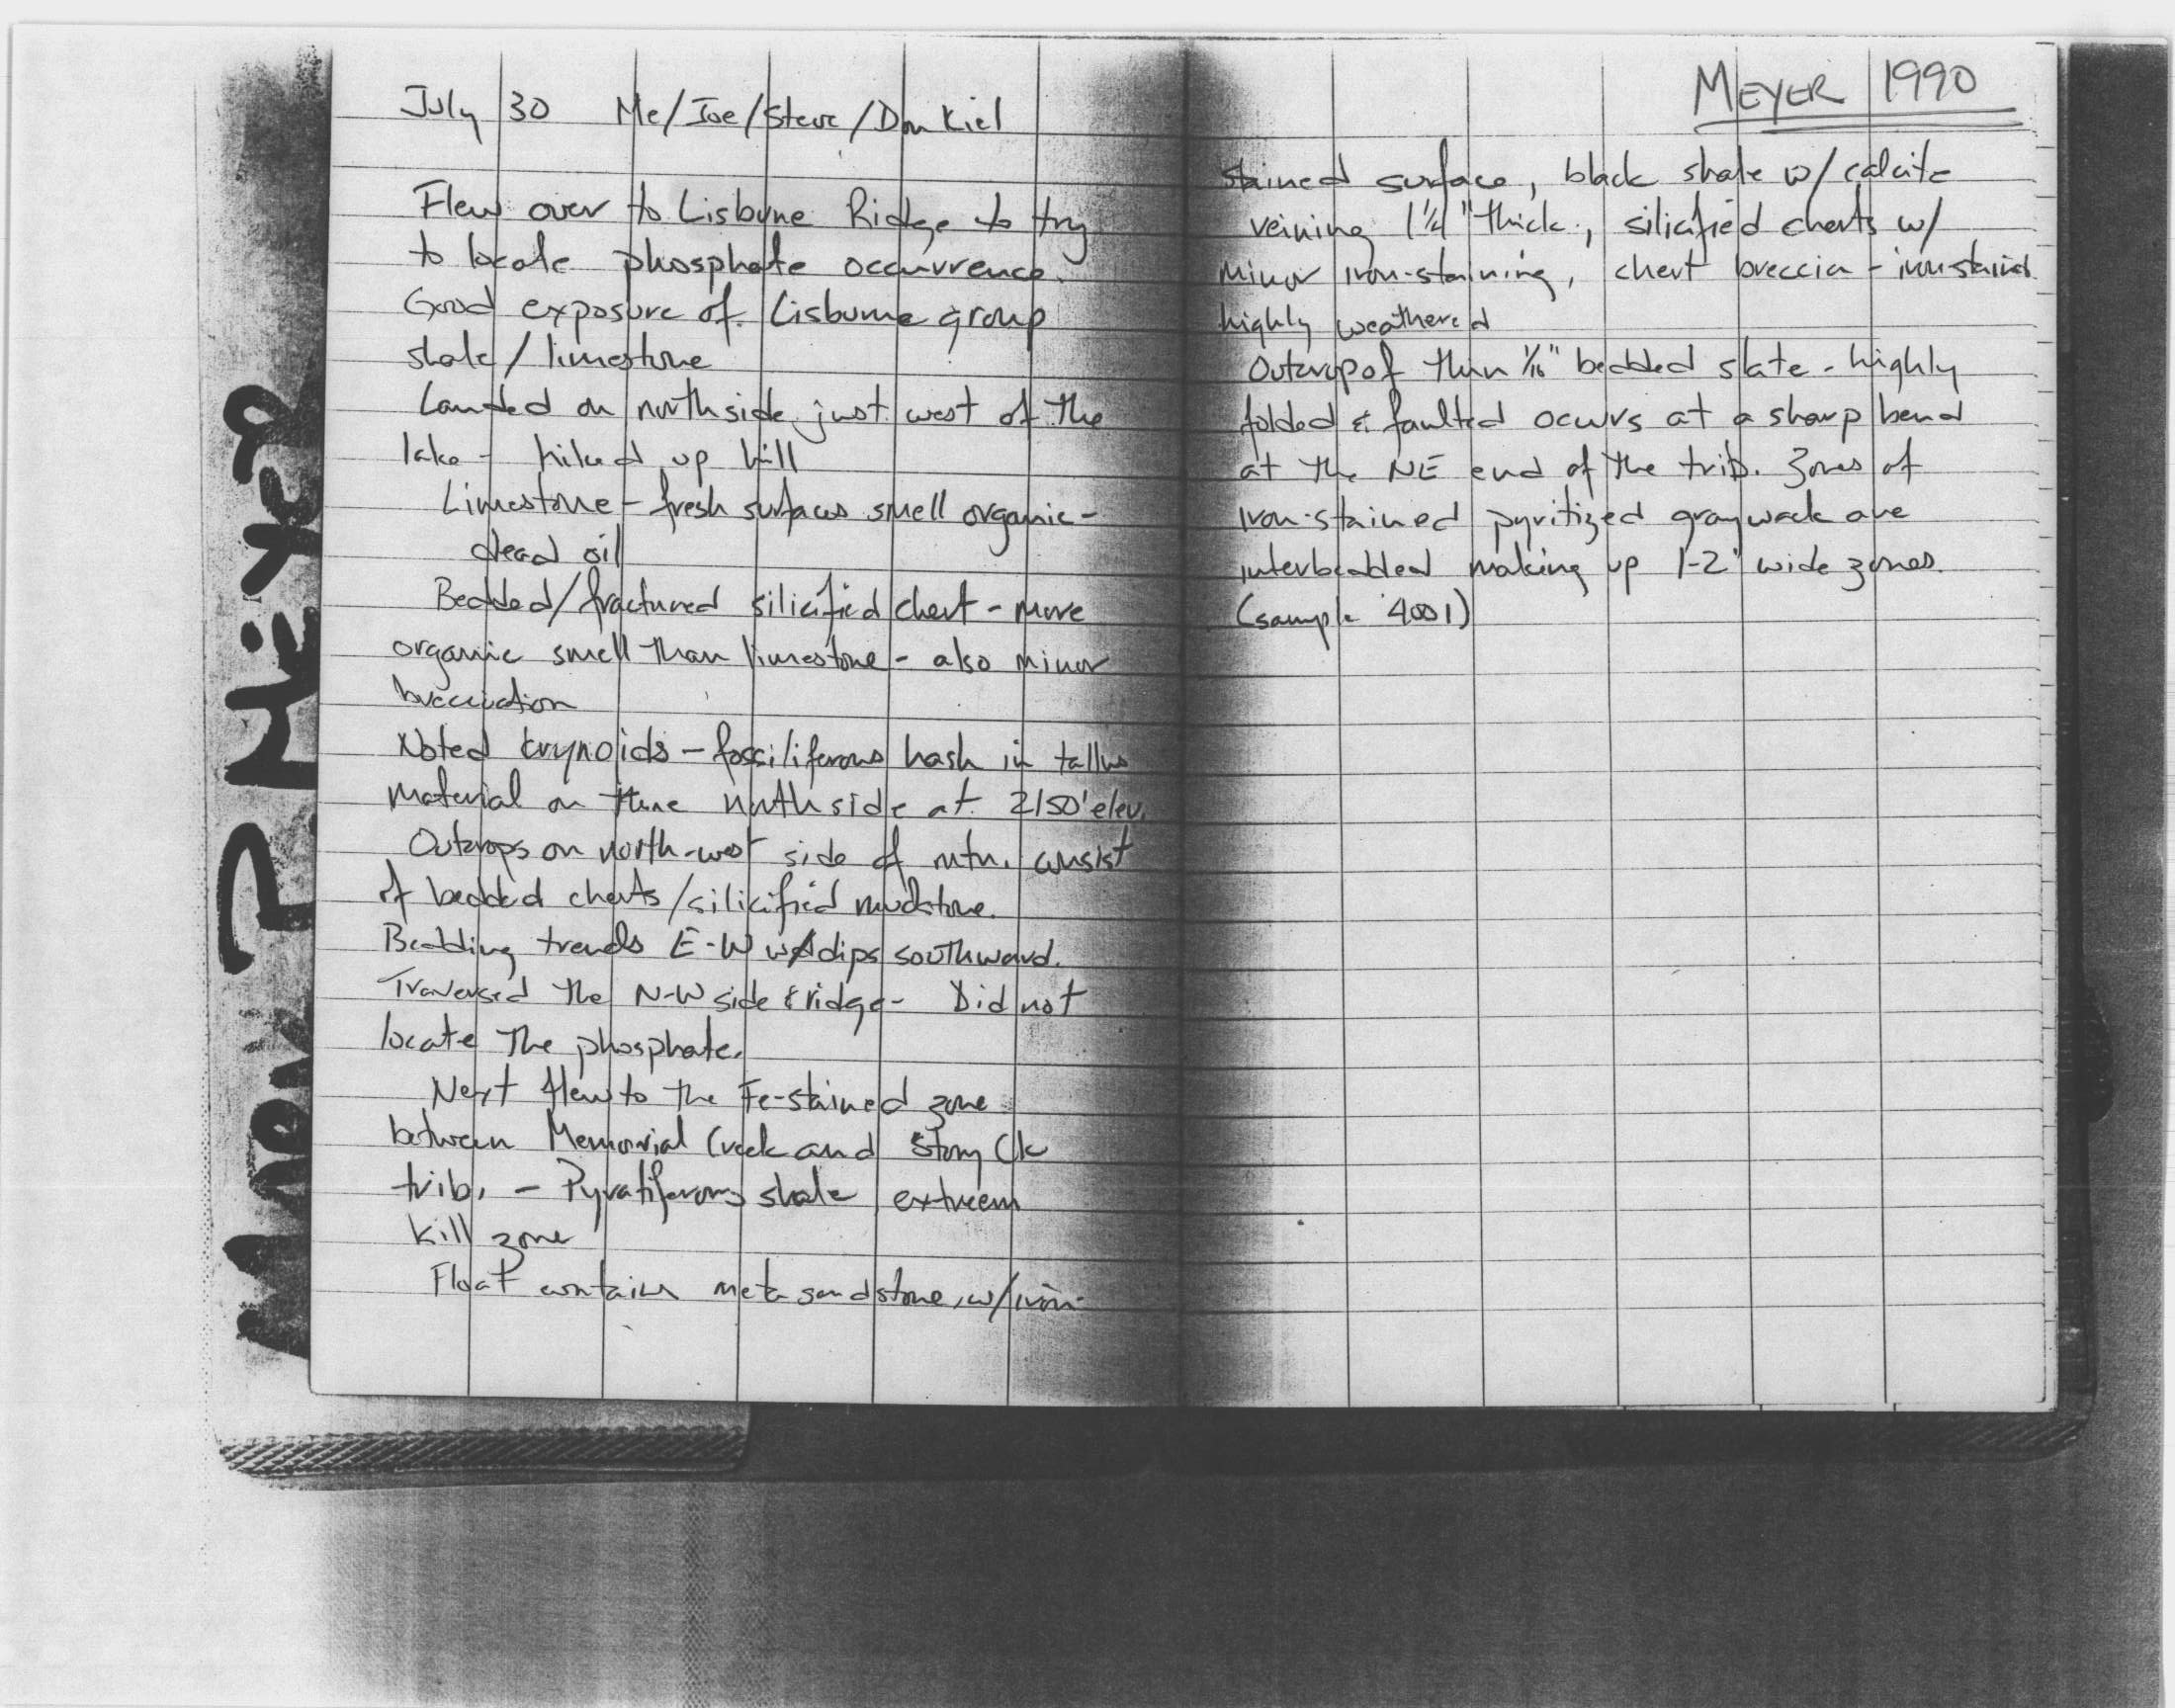 July 30 Me/Joe/Steve/Don Kiel
Flew over to Lisbyne Ridge to try
to locate phosphate occurrence.
Good exposure of Lisburne group
shale/limestone
Landed on north side just west of the
lake - hiked up hill
Limestone - fresh surfaces smell organic -
dead oil
Bedded/fractured silicified chert - more
organic smell than limestone - also minor
brecciation
Noted krynoids - fossiliferous hash in tallus
material on the north side at 2150' elev.
Outcrops on north-west side of mtn. consist
of bedded cherts/silicified mudstone.
Bedding trends E-W w/dips southward.
Traversed the N-W side & ridge - Did not
locate the phosphate.
Next flew to the Fe-stained zone
between Memorial Creek and Story Ck
trib. - Pyratiferous shale, extreem
kill zone
Float contains meta sandstone, w/iron-
MEYER 1990
stained surface, black shale w/calcite
veining 1 1/4" thick, silicified cherts w/
minor iron-staining, chert breccia - iron stained
highly weathered
Outcrop of thin 1/16" bedded slate - highly
folded & faulted ocurs at a sharp bend
at the NE end of the trib. Zones of
iron-stained pyritized graywack are
interbedded making up 1-2' wide zones.
(sample 4001)
P. MEYER